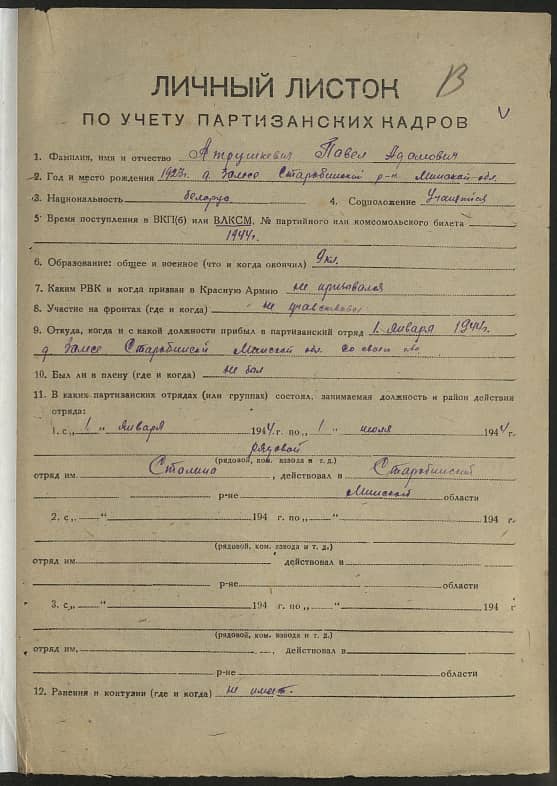 В
ЛИЧНЫЙ ЛИСТОК
ПО УЧЕТУ ПАРТИЗАНСКИХ КАДРОВ
1. Фамилия, имя и отчество Атрушкевич Павел Адамович
2. Год и место рождения 1923г. д. Залесе Старобинский р-н Минской обл.
3. Национальность белорус 4. Соцположение Учащийся
5. Время поступления в ВКП(б) или ВЛКСМ, № партийного или комсомольского билета
1944г.
6. Образование: общее и военное (что и когда окончил) 9 кл.
7. Каким РВК и когда призван в Красную Армию не призывался
8. Участие на фронтах (где и когда) не участвовал
9. Откуда, когда и с какой должности прибыл в партизанский отряд 1 января 1944г.
д. Залесе Старобинской Минской обл. со своей
10. Был ли в плену (где и когда) не был
11. В каких партизанских отрядах (или группах) состоял, занимаемая должность и район действия
отряда:
1. с „ 1 " января 1944 г. по „ 1 " июля 1944 г.
рядовой
(рядовой, ком. взвода и т. д.)
отряд им. Сталина, действовал в Старобинский
р-не Минской области
2. с „ " 194 г. по „ " 194 г.
(рядовой, ком. взвода и т. д.)
отряд им. действовал в
р-не области
3. с „ " 194 г. по „ " 194 г
(рядовой, ком. взвода и т. д.)
отряд им. , действовал в
р-не области
12. Ранения и контузии (где и когда) не имеет.